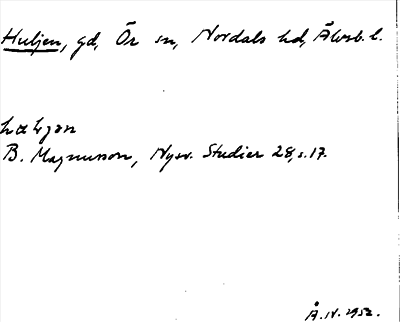 Huljen, gd, Ör sn, Nordals hd, Älvsb. l.
B. Magnusson, Nysv. Studier 28, s. 17.
Å. IV. 1952.